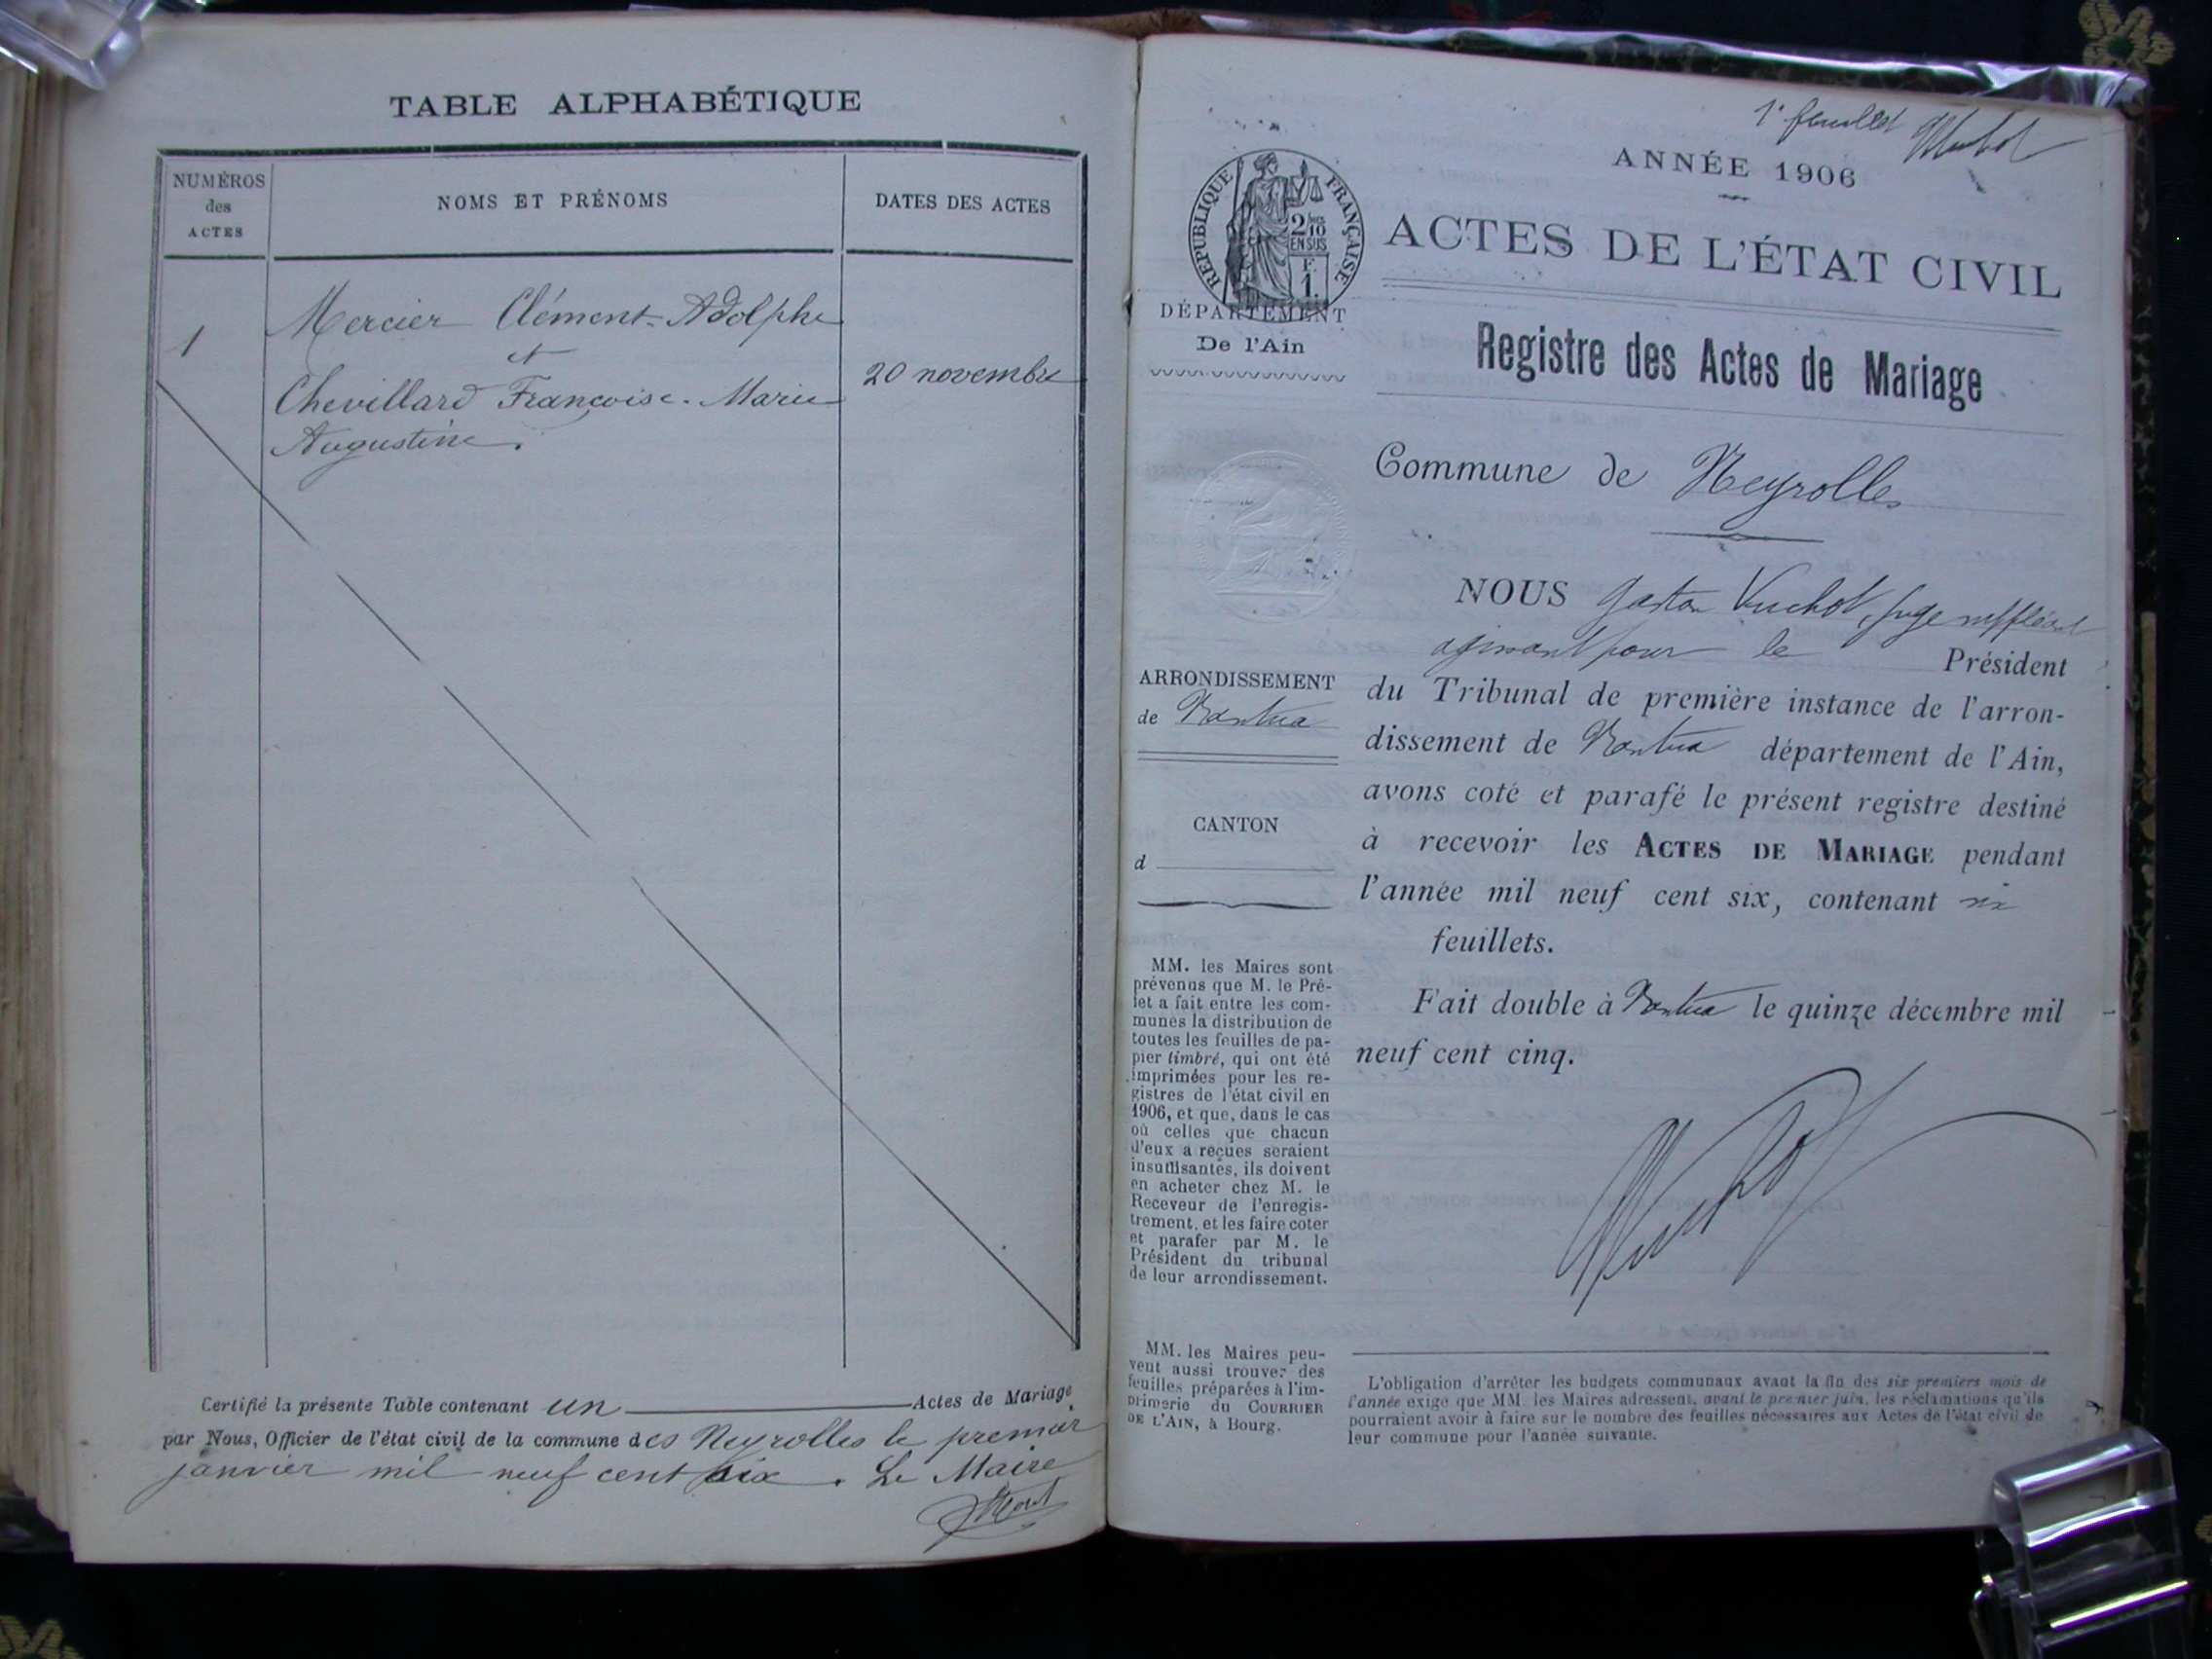 TABLE ALPHABÉTIQUE
NUMÉROS
des
ACTES
NOMS ET PRÉNOMS
DATES DES ACTES
1
Mercier Clément-Adolphe
et
Chevillard Françoise-Marie
Augustine.
20 novembre
Certifié la présente Table contenant un Actes de Mariage
par Nous, Officier de l'état civil de la commune des Neyrolles le premier
janvier mil neuf cent six. Le Maire
1er feuillet Vuchot
ANNÉE 1906
RÉPUBLIQUE FRANÇAISE
2/10
EN SUS
F.
1.
ACTES DE L'ÉTAT CIVIL
DÉPARTEMENT
De l'Ain
Registre des Actes de Mariage
Commune de Neyrolles
NOUS Gaston Vuchot, juge suppléant
agissant pour le Président
du Tribunal de première instance de l'arron-
dissement de Nantua département de l'Ain,
avons coté et parafé le présent registre destiné
à recevoir les ACTES DE MARIAGE pendant
l'année mil neuf cent six, contenant six
feuillets.
Fait double à Nantua le quinze décembre mil
neuf cent cinq.
Vuchot
ARRONDISSEMENT
de Nantua
CANTON
d
MM. les Maires sont
prévenus que M. le Pré-
fet a fait entre les com-
munes la distribution de
toutes les feuilles de pa-
pier timbré, qui ont été
imprimées pour les re-
gistres de l'état civil en
1906, et que, dans le cas
où celles que chacun
d'eux a reçues seraient
insuffisantes, ils doivent
en acheter chez M. le
Receveur de l'enregis-
trement, et les faire coter
et parafer par M. le
Président du tribunal
de leur arrondissement.
MM. les Maires peu-
vent aussi trouver des
feuilles préparées à l'im-
primerie du COURRIER
DE L'AIN, à Bourg.
L'obligation d'arrêter les budgets communaux avant la fin des six premiers mois de
l'année exige que MM. les Maires adressent, avant le premier juin, les réclamations qu'ils
pourraient avoir à faire sur le nombre des feuilles nécessaires aux Actes de l'état civil de
leur commune pour l'année suivante.